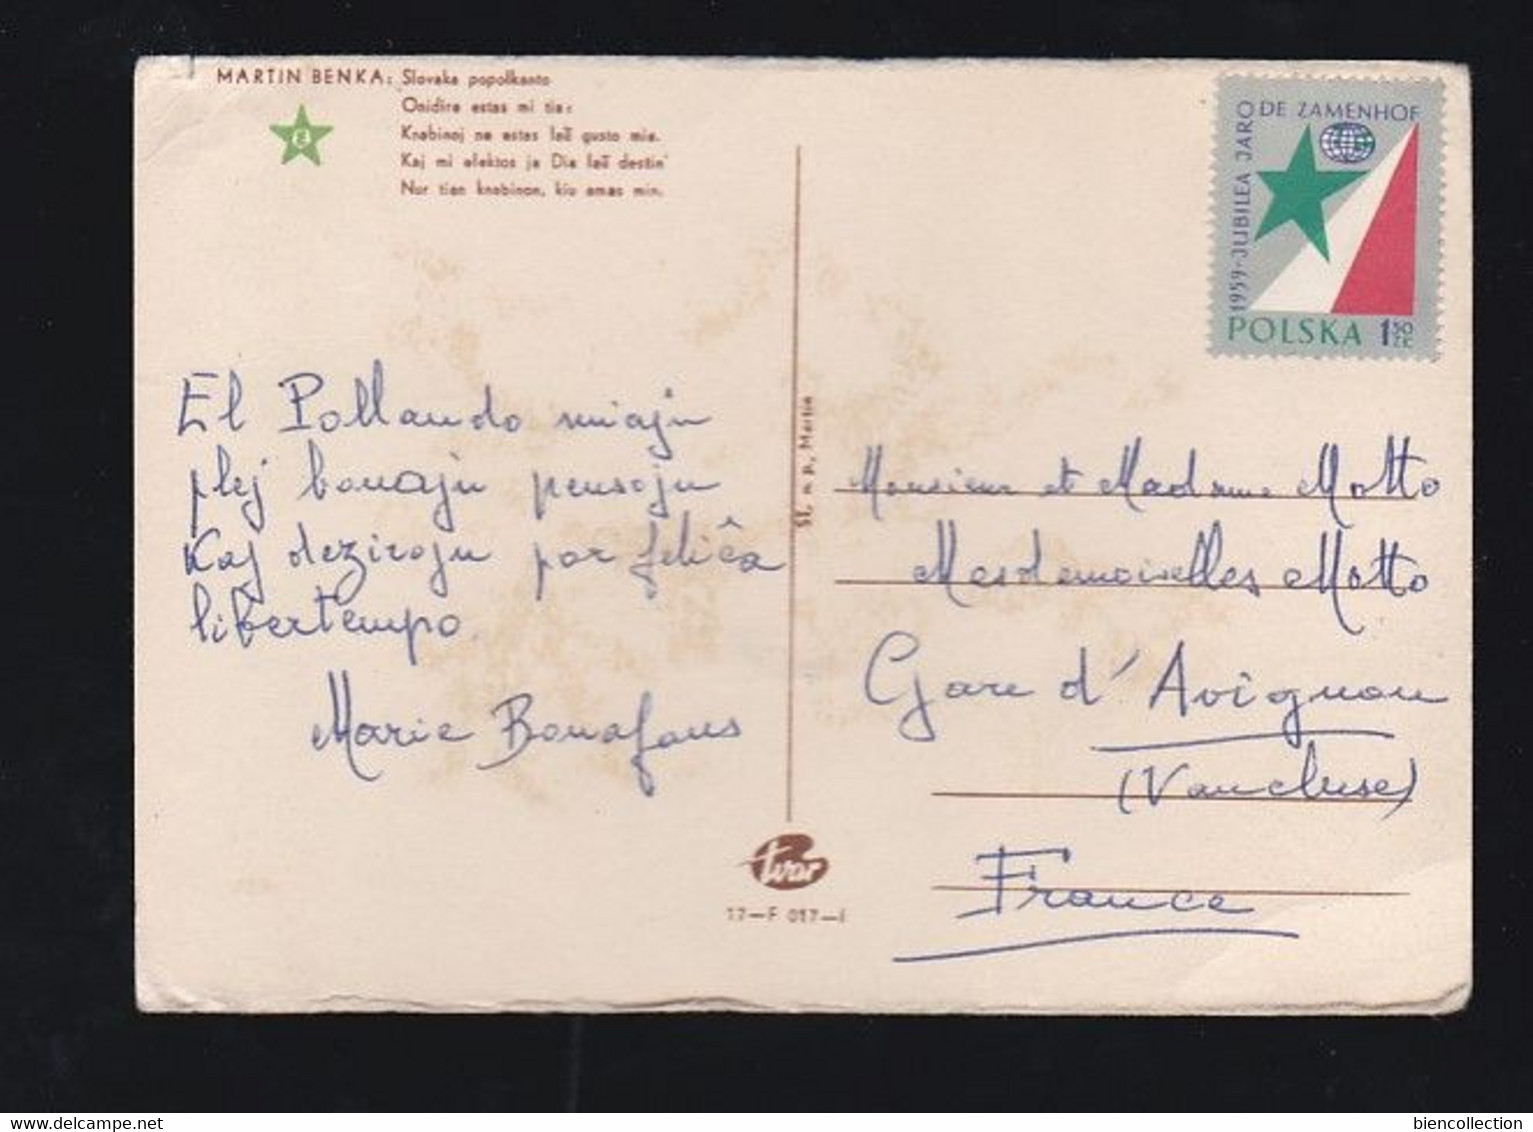 MARTIN BENKA: Slovaka popolkanto
Onidire estas mi tia:
Knabinoj ne estas laŭ gusto mia.
Kaj mi elektos ja Dia laŭ destin'
Nur tian knabinon, kiu amas min.
1959-JUBILEA JARO DE ZAMENHOF
POLSKA 1 50 ZŁ
El Pollando miajn
plej bonajn pensojn
Kaj dezirojn por feliĉa
libertempo.
Marie Bonafous
St. n. p., Martin
Monsieur et Madame Motto
Mesdemoiselles Motto
Gare d'Avignon
(Vaucluse)
France
tvar
17-F 017-I
delcampe.net
biencollection